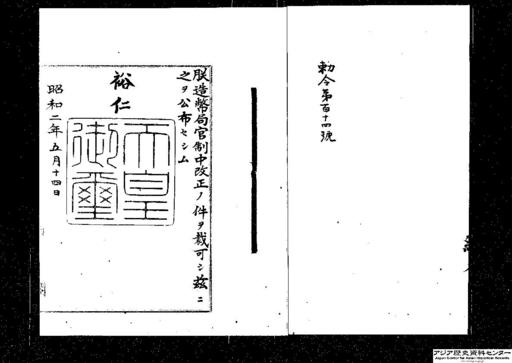 勅令第百十四號
朕造幣局官制中改正ノ件ヲ裁可シ茲ニ
之ヲ公布セシム
裕仁
天皇御璽
昭和二年五月十四日
アジア歴史資料センター
Japan Center for Asian Historical Records